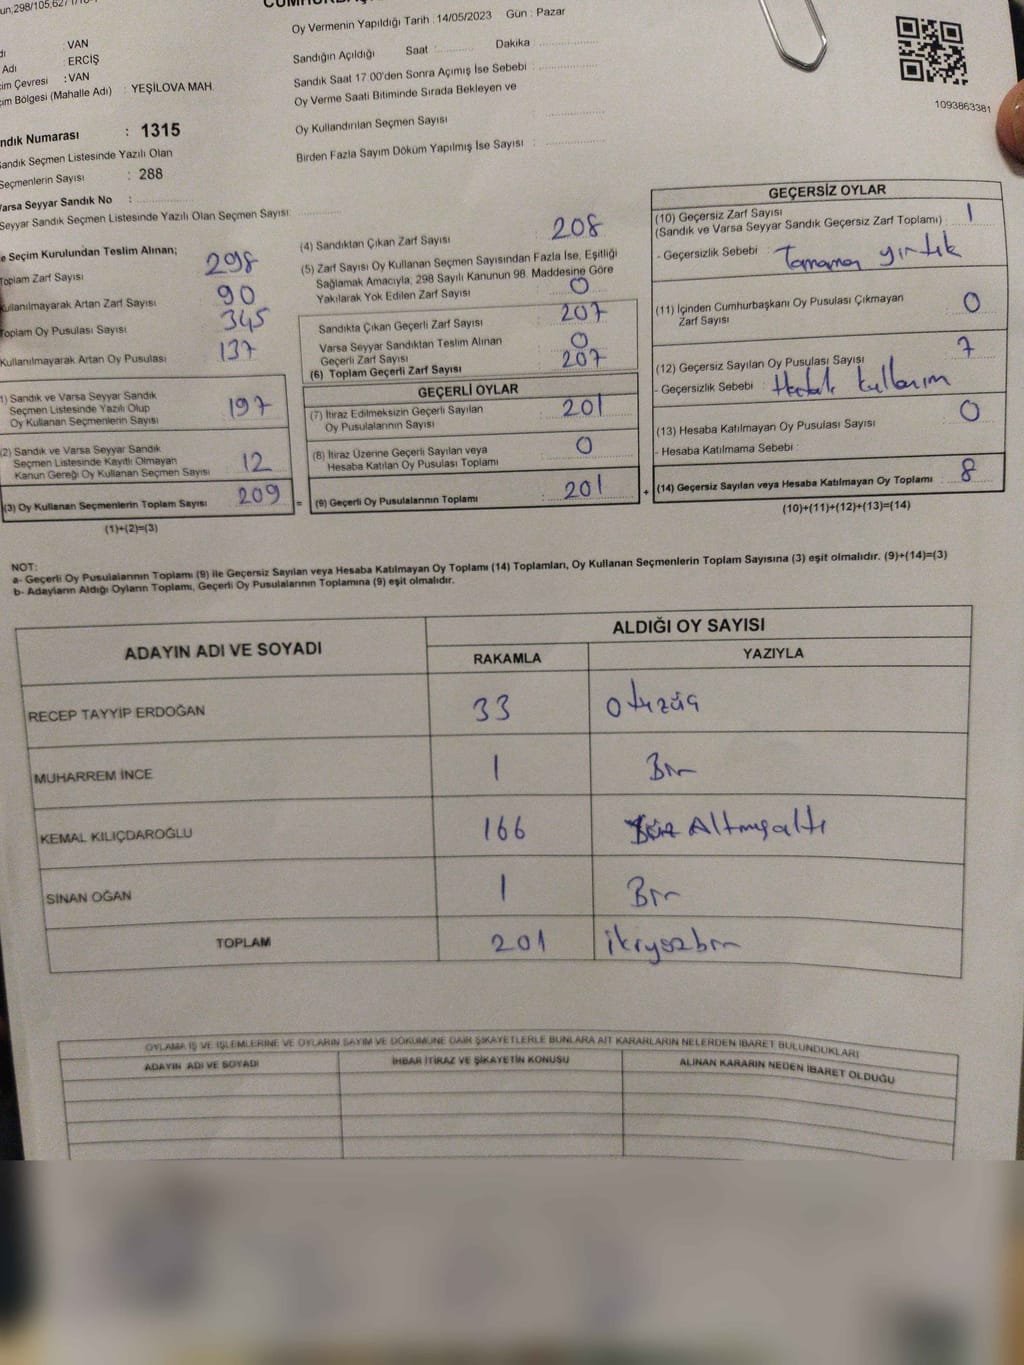 Oy Vermenin Yapıldığı Tarih : 14/05/2023 Gün : Pazar
Sandığın Açıldığı Saat : Dakika :
Sandık Saat 17.00'den Sonra Açımış İse Sebebi :
Oy Verme Saati Bitiminde Sırada Bekleyen ve
Oy Kullandırılan Seçmen Sayısı
Birden Fazla Sayım Döküm Yapılmış İse Sayısı :
1093863381
: VAN
Adı : ERCİŞ
Çevresi : VAN
Bölgesi (Mahalle Adı) : YEŞİLOVA MAH.
Numarası : 1315
Sandık Seçmen Listesinde Yazılı Olan
Seçmenlerin Sayısı : 288
Varsa Seyyar Sandık No :
Seyyar Sandık Seçmen Listesinde Yazılı Olan Seçmen Sayısı:
Seçim Kurulundan Teslim Alınan;
Toplam Zarf Sayısı 298
Kullanılmayarak Artan Zarf Sayısı 90
Toplam Oy Pusulası Sayısı 345
Kullanılmayarak Artan Oy Pusulası 137
1) Sandık ve Varsa Seyyar Sandık
Seçmen Listesinde Yazılı Olup
Oy Kullanan Seçmenlerin Sayısı 197
(2) Sandık ve Varsa Seyyar Sandık
Seçmen Listesinde Kayıtlı Olmayan
Kanun Gereği Oy Kullanan Seçmen Sayısı 12
(3) Oy Kullanan Seçmenlerin Toplam Sayısı 209
(1)+(2)=(3)
(4) Sandıktan Çıkan Zarf Sayısı 208
(5) Zarf Sayısı Oy Kullanan Seçmen Sayısından Fazla İse, Eşitliği
Sağlamak Amacıyla, 298 Sayılı Kanunun 98. Maddesine Göre
Yakılarak Yok Edilen Zarf Sayısı 0
Sandıkta Çıkan Geçerli Zarf Sayısı 207
Varsa Seyyar Sandıktan Teslim Alınan
Geçerli Zarf Sayısı 0
(6) Toplam Geçerli Zarf Sayısı 207
GEÇERLİ OYLAR
(7) İtiraz Edilmeksizin Geçerli Sayılan
Oy Pusulalarının Sayısı : 201
(8) İtiraz Üzerine Geçerli Sayılan veya
Hesaba Katılan Oy Pusulası Toplamı 0
= (9) Geçerli Oy Pusulalarının Toplamı : 201 +
GEÇERSİZ OYLAR
(10) Geçersiz Zarf Sayısı
(Sandık ve Varsa Seyyar Sandık Geçersiz Zarf Toplamı) : 1
- Geçersizlik Sebebi : yırtık
(11) İçinden Cumhurbaşkanı Oy Pusulası Çıkmayan
Zarf Sayısı 0
(12) Geçersiz Sayılan Oy Pusulası Sayısı 7
- Geçersizlik Sebebi : Hatalı kullanım
(13) Hesaba Katılmayan Oy Pusulası Sayısı 0
- Hesaba Katılmama Sebebi
(14) Geçersiz Sayılan veya Hesaba Katılmayan Oy Toplamı : 8
(10)+(11)+(12)+(13)=(14)
NOT:
a- Geçerli Oy Pusulalarının Toplamı (9) ile Geçersiz Sayılan veya Hesaba Katılmayan Oy Toplamı (14) Toplamları, Oy Kullanan Seçmenlerin Toplam Sayısına (3) eşit olmalıdır. (9)+(14)=(3)
b- Adayların Aldığı Oyların Toplamı, Geçerli Oy Pusulalarının Toplamına (9) eşit olmalıdır.
ADAYIN ADI VE SOYADI ALDIĞI OY SAYISI
RAKAMLA YAZIYLA
RECEP TAYYİP ERDOĞAN 33 Otuzüç
MUHARREM İNCE 1 Bir
KEMAL KILIÇDAROĞLU 166 Yüz Altmışaltı
SİNAN OĞAN 1 Bir
TOPLAM 201 ikiyüzbir
OYLAMA İŞ VE İŞLEMLERİNE VE OYLARIN SAYIM VE DÖKÜMÜNE DAİR ŞİKAYETLERLE BUNLARA AİT KARARLARIN NELERDEN İBARET BULUNDUKLARI
ADAYIN ADI VE SOYADI İHBAR İTİRAZ VE ŞİKAYETİN KONUSU ALINAN KARARIN NEDEN İBARET OLDUĞU